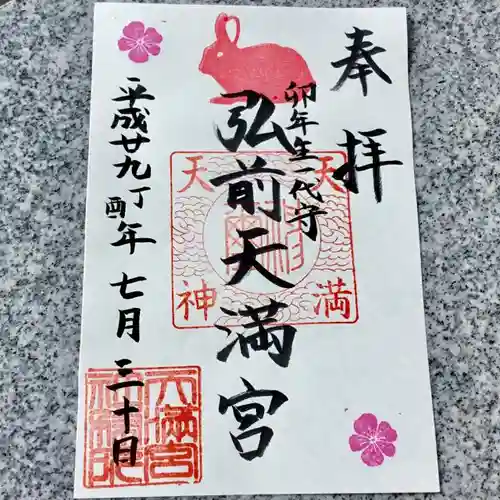 奉拝
卯年生一代守
弘前天満宮
天満
天神
平成廿九丁酉年七月三十日